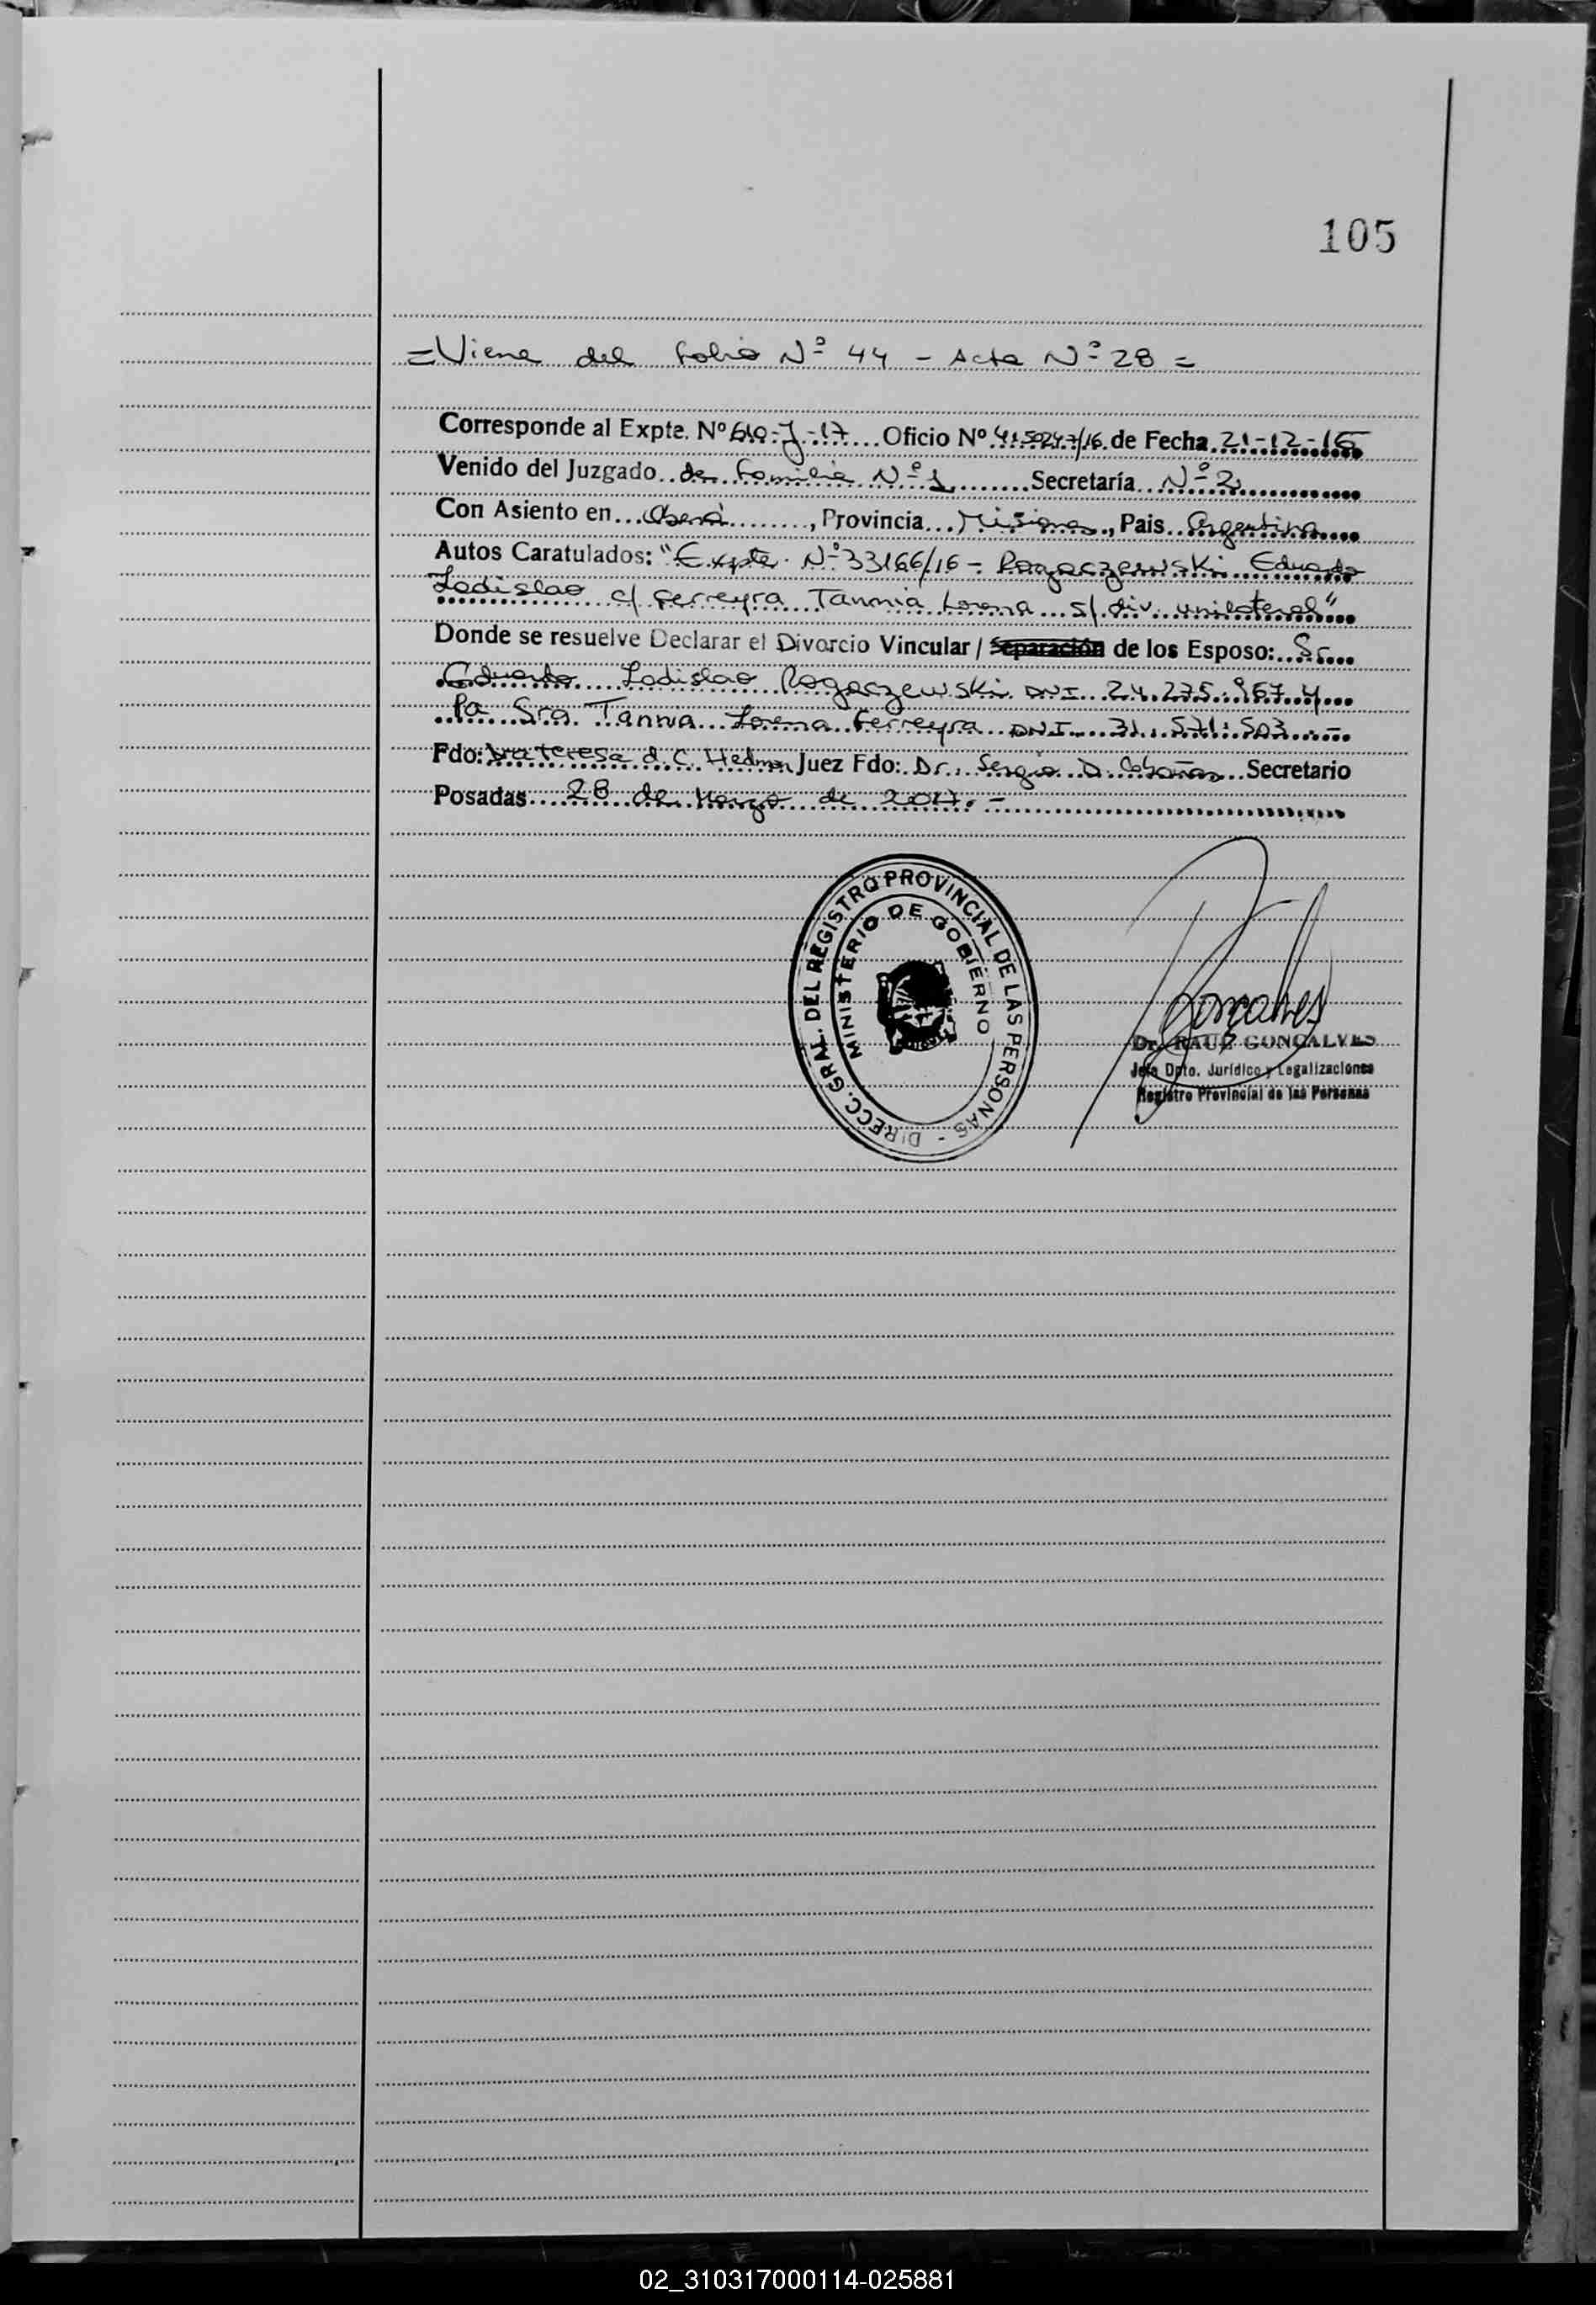 105
= Viene del folio Nº 44 - Acta Nº 28 =
Corresponde al Expte. Nº 610-J-17 Oficio Nº 4150247/16 de Fecha 21-12-16
Venido del Juzgado de Familia Nº 1 Secretaría Nº 2
Con Asiento en Oberá, Provincia Misiones, Pais Argentina
Autos Caratulados: "Expte. Nº 33166/16 - Rogaczewski Eduardo
Ladislao c/ Ferreyra Tannia Lorena s/ div. unilateral"
Donde se resuelve Declarar el Divorcio Vincular / Separación de los Esposo: Sr.
Eduardo Ladislao Rogaczewski DNI 24.275.967 y
la Sra. Tannia Lorena Ferreyra DNI 31.571.503.-
Fdo: Dra Teresa d. C. Hedman Juez Fdo: Dr. Sergio D. Secretario
Posadas 28 de Marzo de 2017.-
DIRECC. GRAL. DEL REGISTRO PROVINCIAL DE LAS PERSONAS -
MINISTERIO DE GOBIERNO
MISIONES
Goncalves
Dr. RAUL GONCALVES
Jefe Dpto. Jurídico y Legalizaciones
Registro Provincial de las Personas
02_310317000114-025881